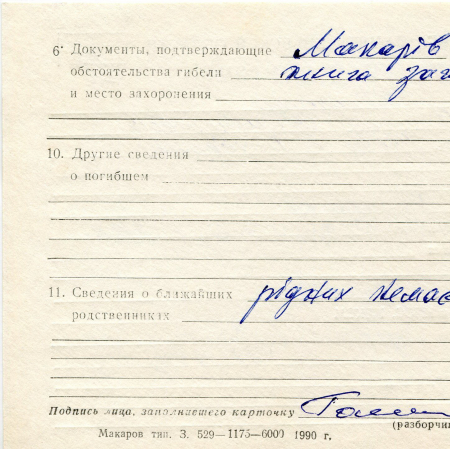 6. Документы, подтверждающие Макарів
обстоятельства гибели книга заг
и место захоронения
10. Другие сведения
о погибшем
11. Сведения о ближайших рідних немає
родственниках
Подпись лица, заполнившего карточку
(разборчи
Макаров тип. З. 529—1175—6000 1990 г.